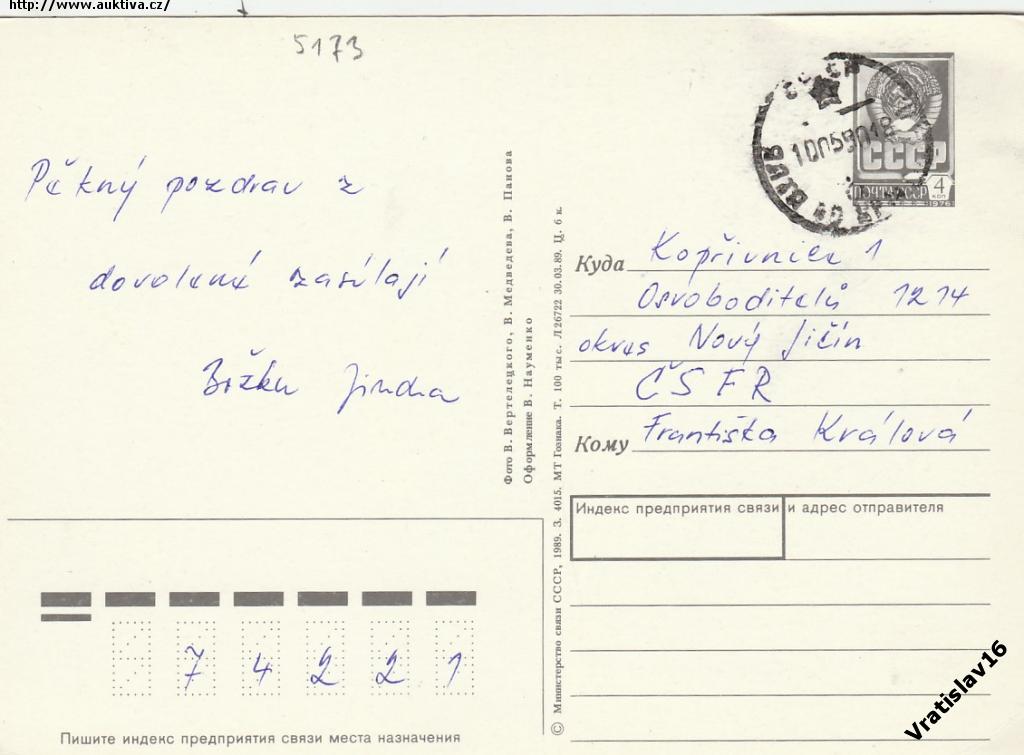 http://www.auktiva.cz/
5173
Pěkný pozdrav z
dovolené zasílají
Jindra
Фото В. Вертелецкого, В. Медведева, В. Панова
Оформление В. Науменко
© Министерство связи СССР, 1989. З. 4015. МТ Гознака. Т. 100 тыс. Л26722 30.03.89. Ц. 6 к.
СССР
ПОЧТА СССР 4 КОП
1976
10059018
Куда Kopřivnice 1
Osvoboditelů 1214
okres Nový Jičín
ČSFR
Кому Františka Králová
Индекс предприятия связи и адрес отправителя
74221
Пишите индекс предприятия связи места назначения
Vratislav16